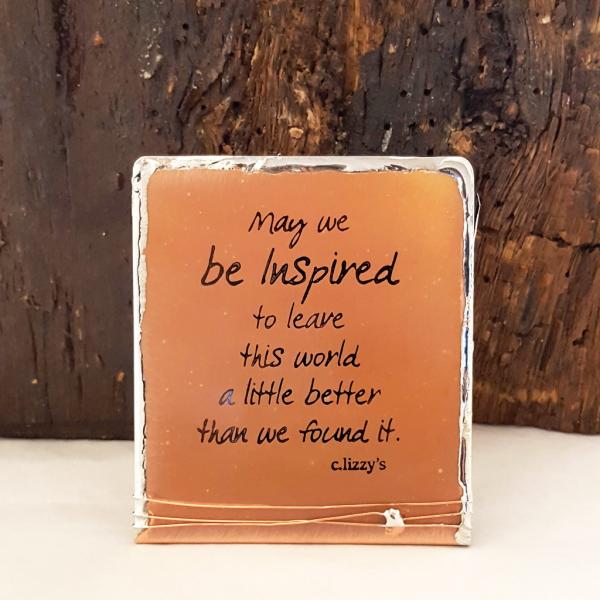 May we
be Inspired
to leave
this world
a little better
than we found it.
c.lizzy's